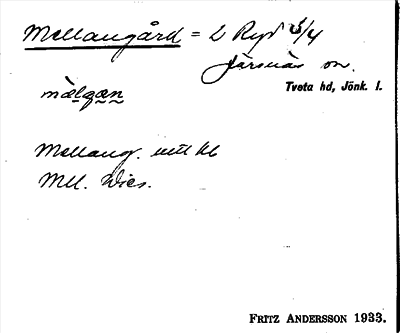 Mellangård = 2 Ryd 3/4
Järsnäs sn.
Tveta hd, Jönk. l.
mælgæn
Mellang. utt bl
Mll. Wies.
FRITZ ANDERSSON 1933.